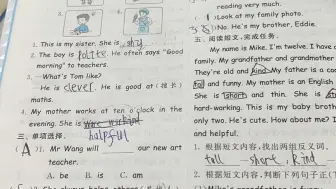 3.
4.
1. This is my sister. She is shy
2. The boy is polite. He often says "Good
morning" to teachers.
3. —What's Tom like?
—He is clever. He is good at(擅长)
maths.
4. My mother works at ten o'clock in the
evening. She is
helpful
三、单项选择。
A )1. Mr Wang will our new art
teacher.
A. be B. is C. am
reading very much.
)Look at my family photo.
)No. He's my brother, Eddie.
五、阅读短文,完成任务。
My name is Mike. I'm twelve. I have a
family. My grandfather and grandmother
They're old and kind. My father is a coo
and funny. My mother is an English
She is short and thin. She is
hard-working. This is my baby broth
only two. He's cute. How about me?
and helpful.
1. 根据短文内容,找出两组反义词。
tall —short, kind
2. 根据短文内容,判断下列句子正